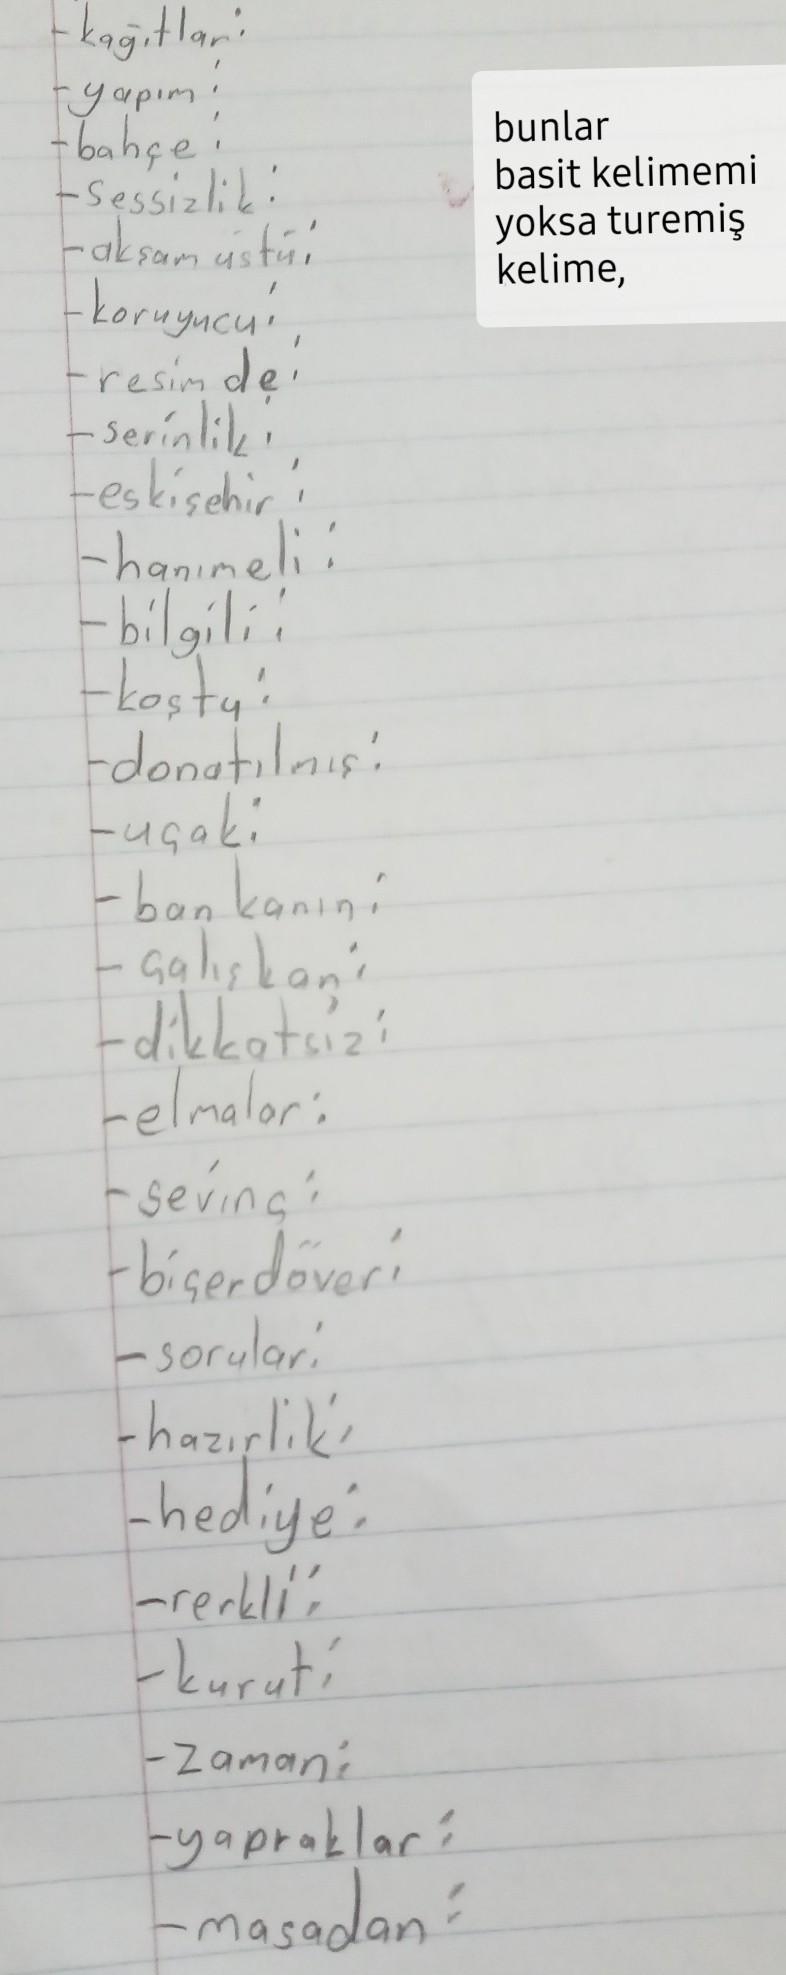 -kağıtlar:
-yapım:
-bahçe:
-Sessizlik:
-akşam üstü:
-koruyucu:
-resimde:
-serinlik:
-eskişehir:
-hanımeli:
-bilgili:
-koştu:
-donatılmış:
-uçak:
-bankanın:
-çalışkan:
-dikkatsiz:
-elmalar:
-sevinç:
-biçerdöver:
-sorular:
-hazırlik:
-hediye:
-renkli:
-kurut:
-zaman:
-yapraklar:
-masadan:
bunlar
basit kelimemi
yoksa turemiş
kelime,